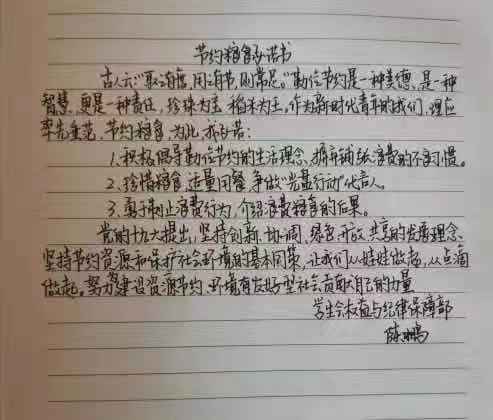 节约粮食承诺书
古人云:"取之有度,用之有节,则常足。"勤俭节约是一种美德、是一种
智慧、更是一种责任,珍珠为宝,稻米为王。作为新时代青年的我们,理应
率先垂范,节约粮食,为此我承诺:
1.积极倡导勤俭节约的生活理念,摒弃铺张浪费的不良习惯。
2.珍惜粮食,适量用餐,争做"光盘行动"代言人。
3.勇于制止浪费行为,介绍浪费粮食的后果。
党的十九大提出,坚持创新、协调、绿色、开放、共享的发展理念、
坚持节约资源和保护社会环境的基本国策,让我们从娃娃做起,从点滴
做起。努力建设资源节约、环境友好型社会贡献自己的力量
学生会权益与纪律保障部
陈鹏